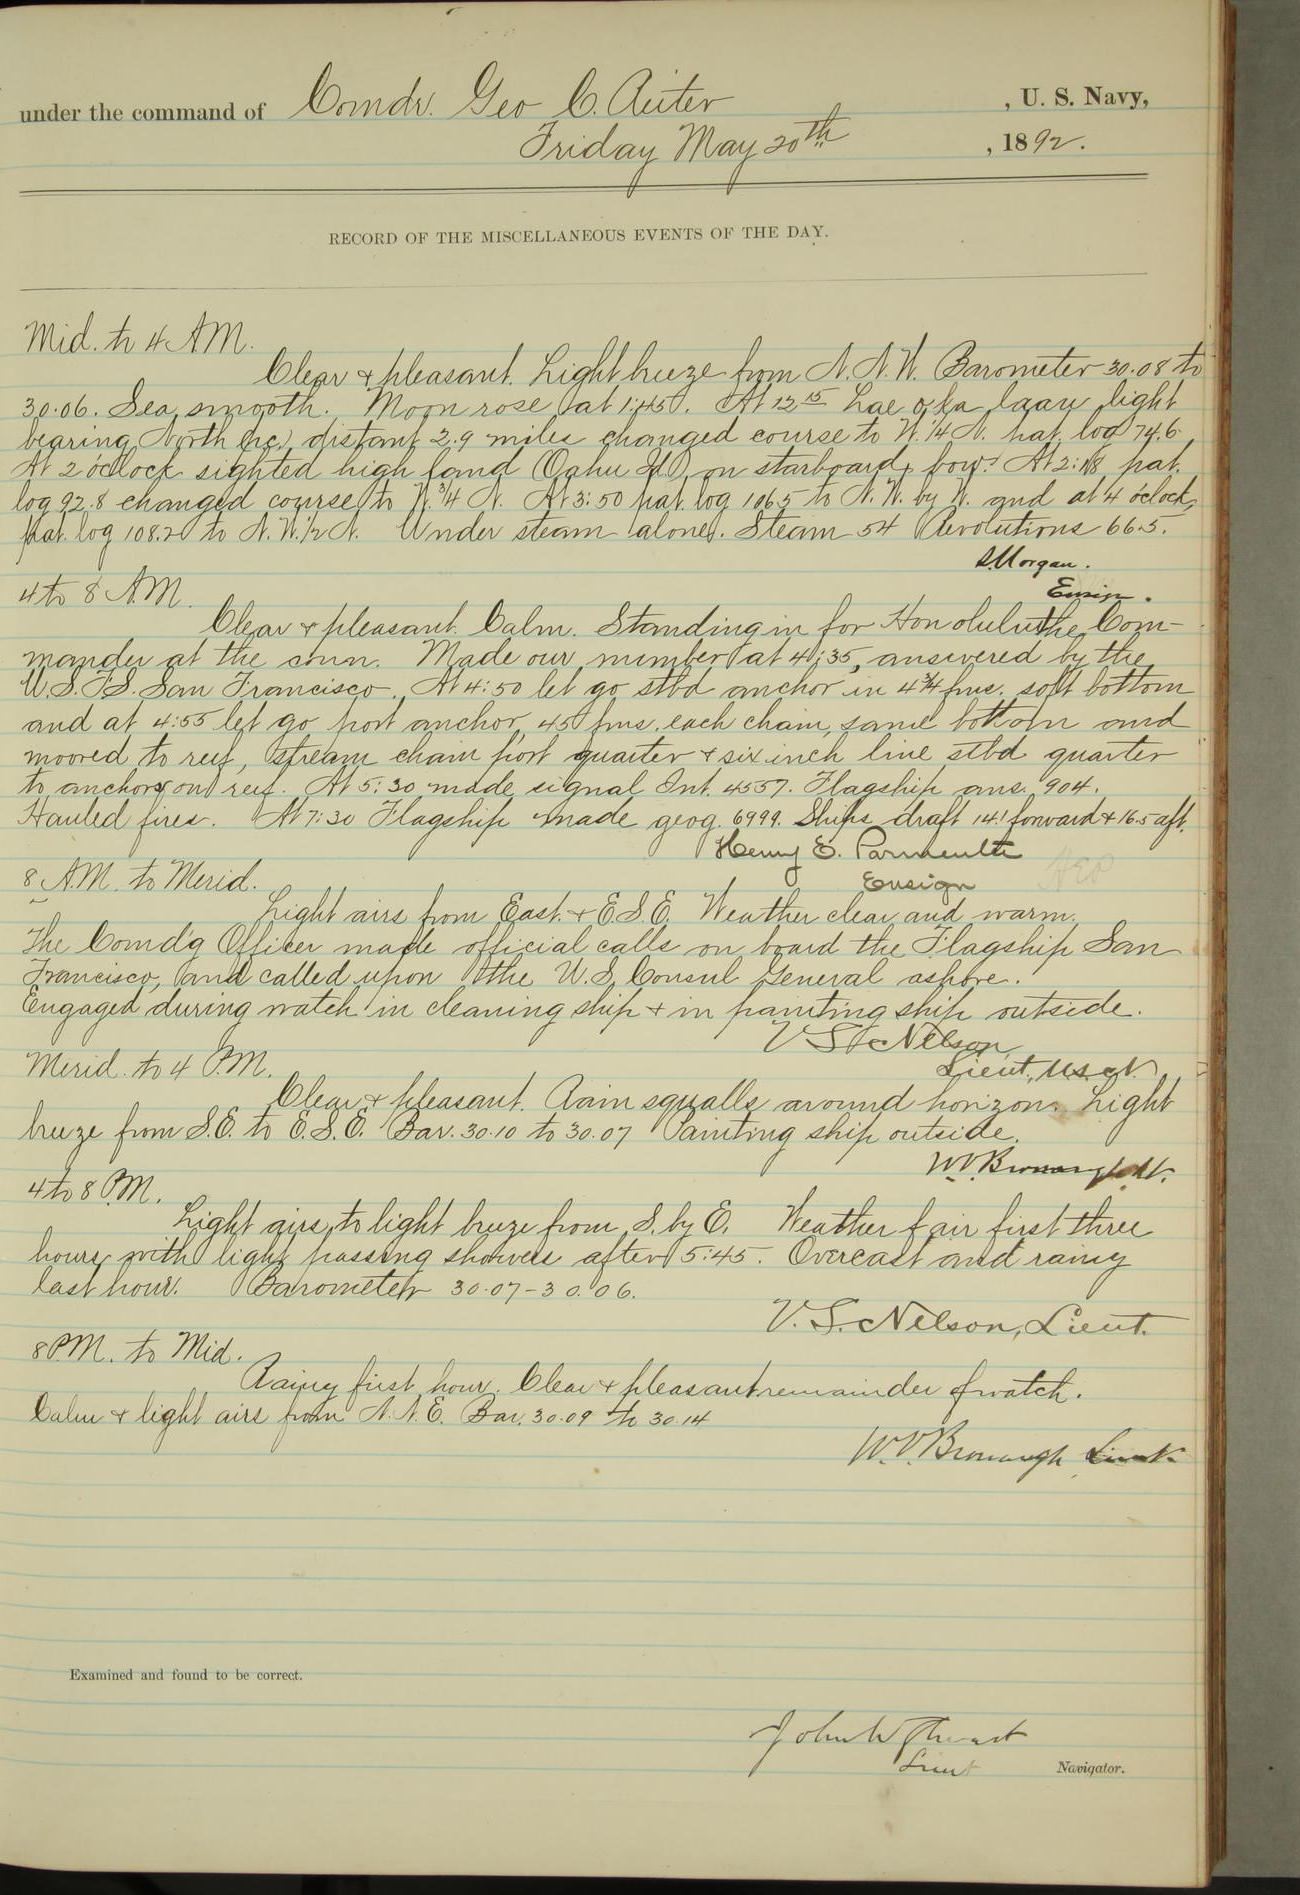 under the command of Comdr. Geo C. Reiter , U. S. Navy,
Friday May 20th , 1892.
RECORD OF THE MISCELLANEOUS EVENTS OF THE DAY.
Mid. to 4 A.M.
Clear & pleasant. Light breeze from N.N.W. Barometer 30.08 to
30.06. Sea smooth. Moon rose at 1:45. At 12 15 Lae o ka laau light
bearing North (pc.) distant 2.9 miles changed course to W. 1/4 N. pat. log 74.6.
At 2 o'clock sighted high land (Oahu Id) on starboard bow. At 2:48 pat.
log 92.8 changed course to W. 3/4 N. At 3:50 pat. log 106.5 to N.W. by W. and at 4 o'clock,
pat. log 108.2 to N.W. 1/2 N. Under steam alone. Steam 54 Revolutions 66.5.
S. Morgan.
Ensign.
4 to 8 A.M.
Clear & pleasant. Calm. Standing in for Honolulu the Com-
mander at the conn. Made our number at 4:35, answered by the
U.S.F.S. San Francisco. At 4:50 let go stbd anchor in 4 3/4 fms. soft bottom
and at 4:55 let go port anchor, 45 fms. each chain, same bottom and
moored to reef, stream chain port quarter & six inch line stbd quarter
to anchors on reef. At 5:30 made signal Int. 4557. Flagship ans. 904.
Hauled fires. At 7:30 Flagship made geog. 6999. Ships draft 14.1 forward & 16.5 aft.
Henry E. Parmenter
Ensign
8 A.M. to Merid.
Light airs from East. & E.S.E. Weather clear and warm.
The Comd'g Officer made official calls on board the Flagship San
Francisco, and called upon the U.S. Consul General ashore.
Engaged during watch in cleaning ship & in painting ship outside.
V S Nelson
Lieut., U.S.N.
Merid. to 4 P.M.
Clear & pleasant. Rain squalls around horizon. Light
breeze from S.E. to E.S.E. Bar. 30.10 to 30.07 Painting ship outside.
W.V. Bronaugh Lt.
4 to 8 P.M.
Light airs to light breeze from S. by E. Weather fair first three
hours with light passing showers after 5:45. Overcast and rainy
last hour. Barometer 30.07-30.06.
V. S. Nelson, Lieut.
8 P.M. to Mid.
Rainy first hour. Clear & pleasant remainder of watch.
Calm & light airs from N.N.E. Bar. 30.09 to 30.14
W.V. Bronaugh Lieut.
Examined and found to be correct.
John W
Lieut Navigator.